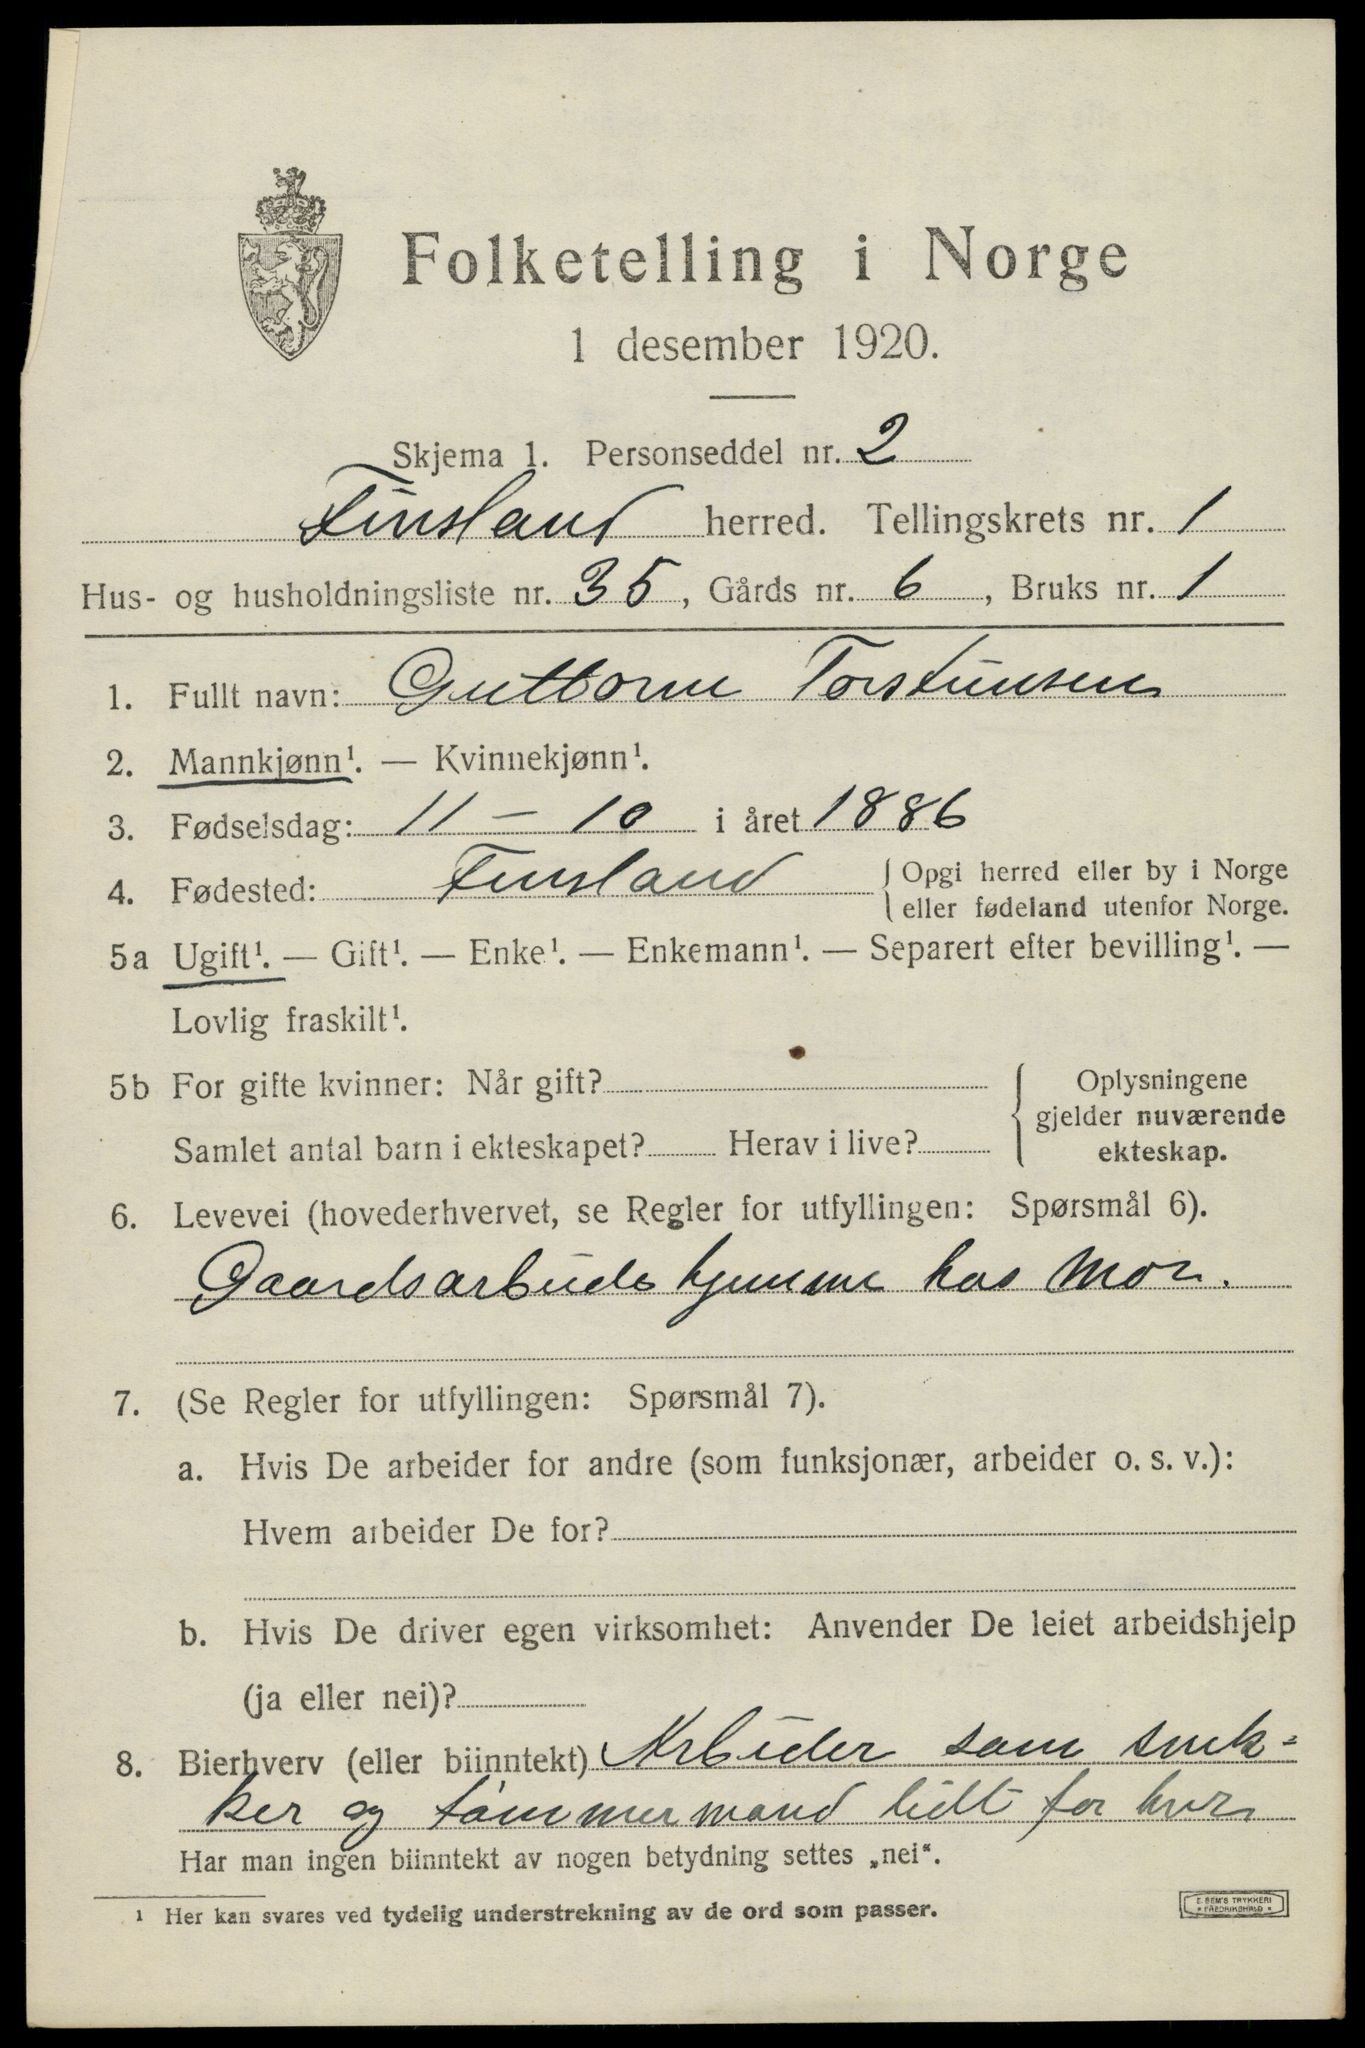 Folketelling i Norge
1 desember 1920.
Skjema 1. Personseddel nr. 2
Finsland herred. Tellingskrets nr. 1
Hus- og husholdningsliste nr. 35, Gårds nr. 6, Bruks nr. 1
1. Fullt navn: Guttorm Torsteinsen
2. Mannkjønn¹. — Kvinnekjønn¹.
3. Fødselsdag: 11 – 10 i året 1886
4. Fødested: Finsland { Opgi herred eller by i Norge
eller fødeland utenfor Norge.
5a Ugift¹. — Gift¹. — Enke¹. — Enkemann¹. — Separert efter bevilling¹. —
Lovlig fraskilt¹.
5b For gifte kvinner: Når gift? { Oplysningene
gjelder nuværende
Samlet antal barn i ekteskapet? Herav i live? ekteskap.
6. Levevei (hovederhvervet, se Regler for utfyllingen: Spørsmål 6).
Gaardsarbeide hjemme hos Mor.
7. (Se Regler for utfyllingen: Spørsmål 7).
a. Hvis De arbeider for andre (som funksjonær, arbeider o. s. v.):
Hvem arbeider De for?
b. Hvis De driver egen virksomhet: Anvender De leiet arbeidshjelp
(ja eller nei)?
8. Bierhverv (eller biinntekt) Arbeider som snek-
ker og tømmermand lidt for hver
Har man ingen biinntekt av nogen betydning settes „nei“.
¹ Her kan svares ved tydelig understrekning av de ord som passer.
E. SEM'S TRYKKERI
FREDRIKSHALD